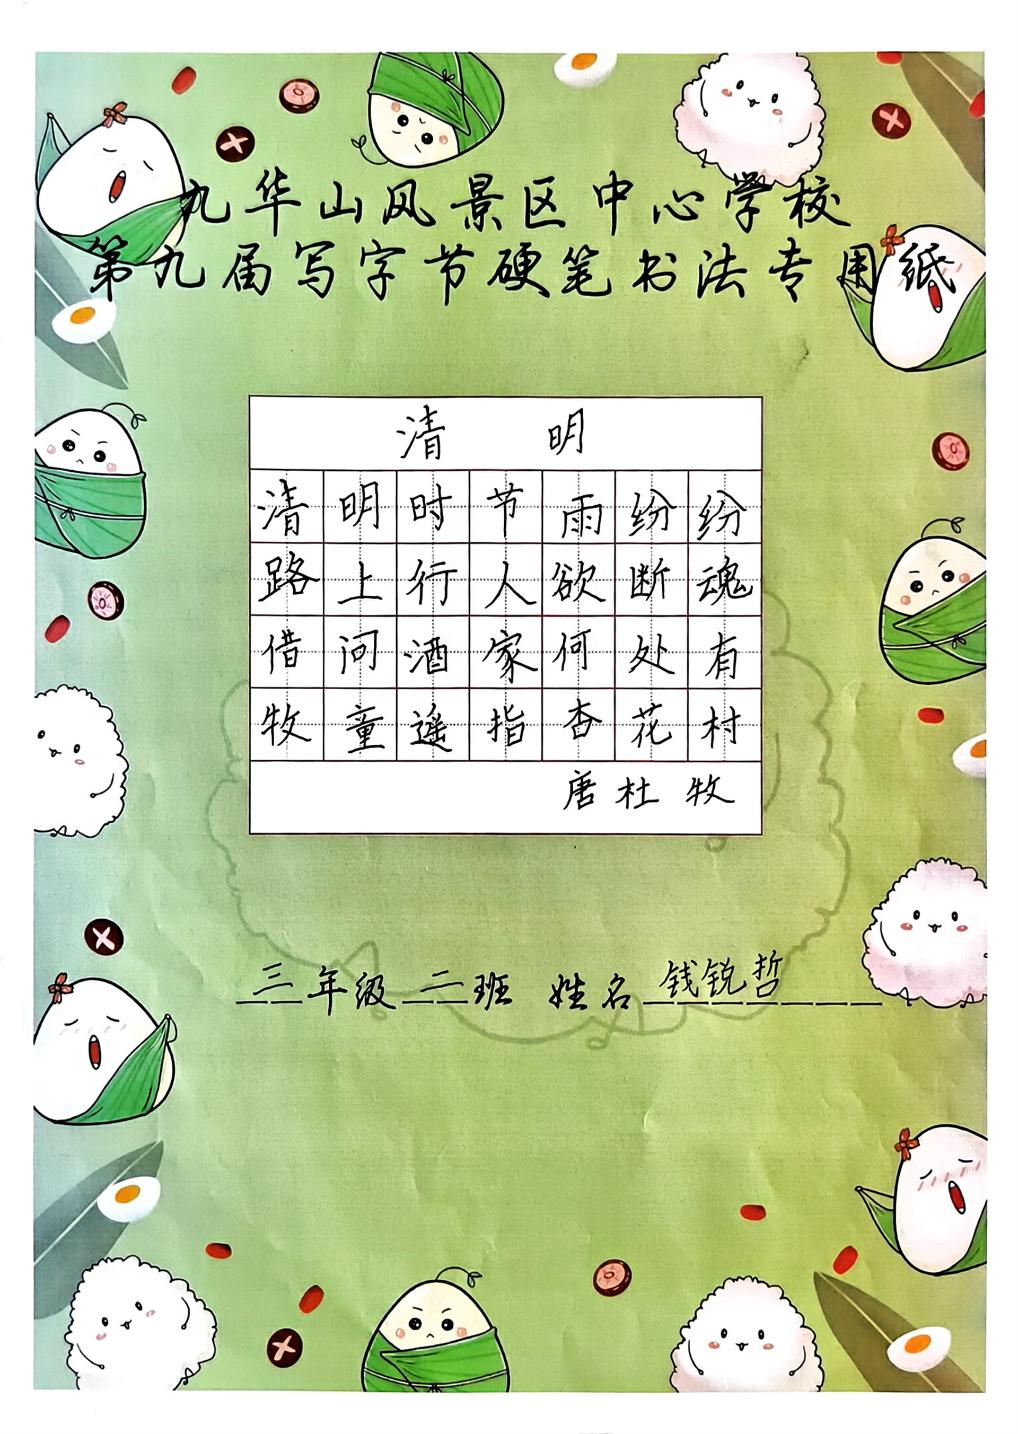 九华山风景区中心学校
第九届写字节硬笔书法专用纸
清 明
清明时节雨纷纷
路上行人欲断魂
借问酒家何处有
牧童遥指杏花村
唐 杜 牧
三年级二班 姓名 钱锐哲